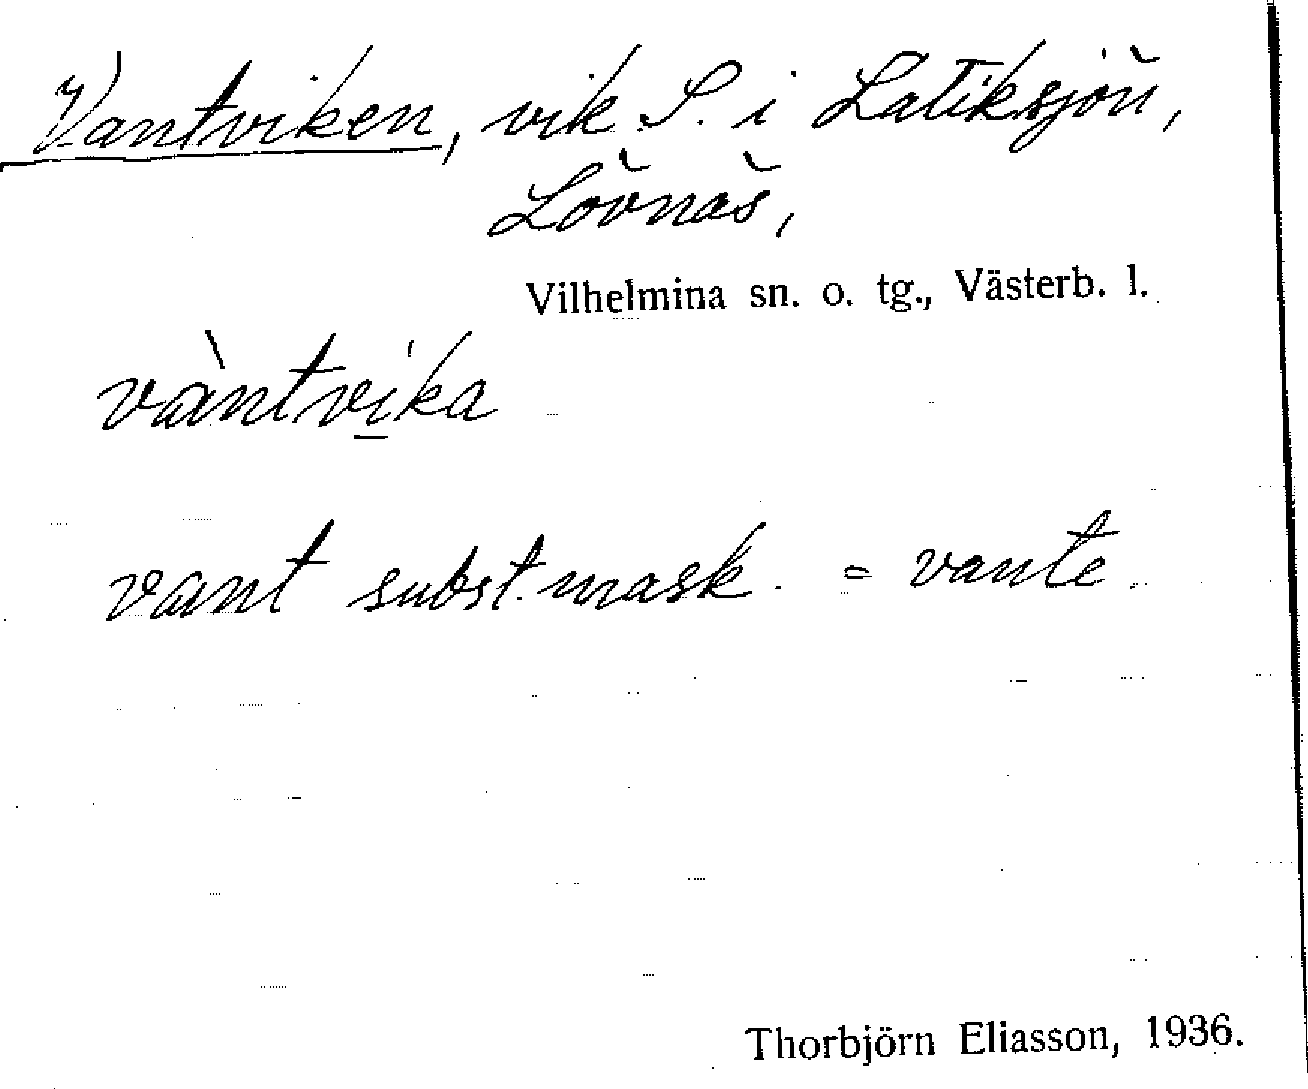 Vantviken, vik S. i Latiksjön,
Lövnäs,
Vilhelmina sn. o. tg., Västerb. l.
vàntvika
vant subst. mask. = vante.
Thorbjörn Eliasson, 1936.